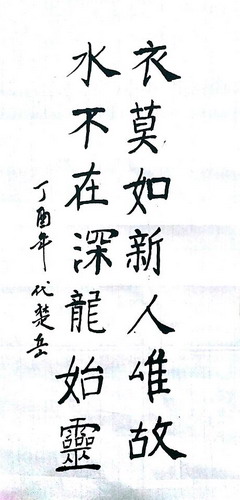 衣莫如新人惟故
水不在深龍始靈
丁酉年代楚岳